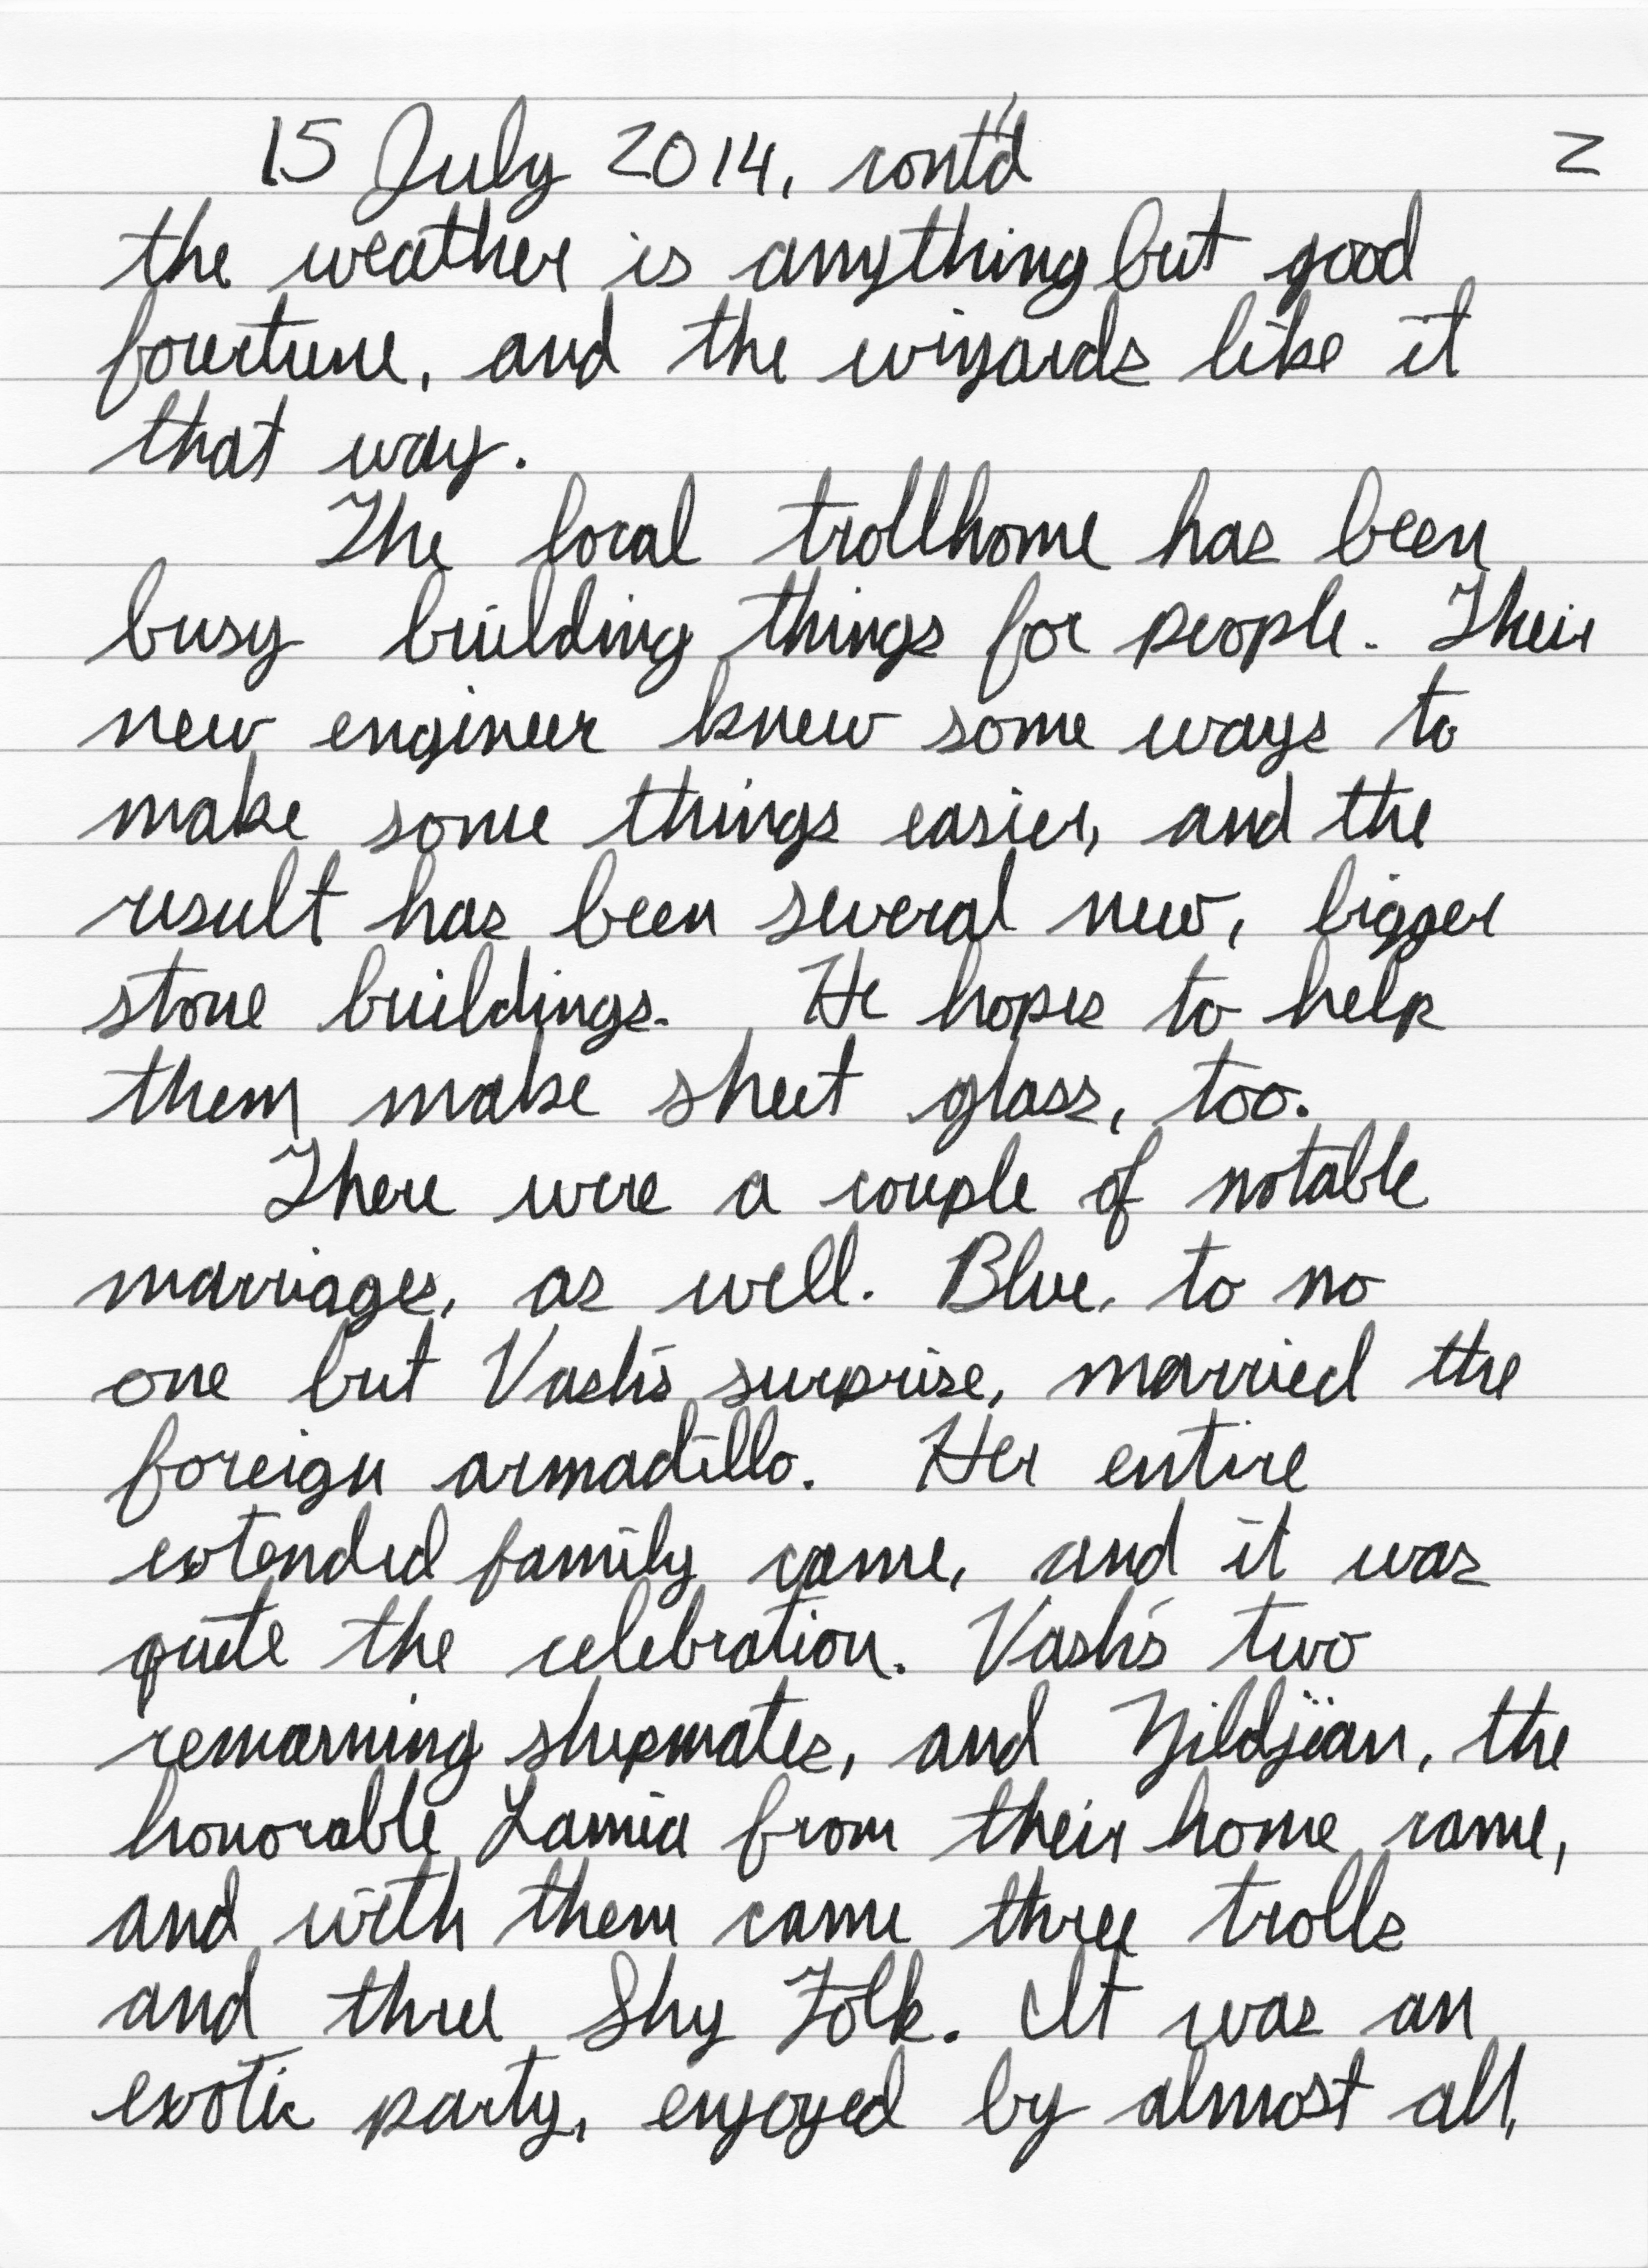 15 July 2014, cont'd 2
the weather is anything but good
fourtune, and the wizards like it
that way.
The local trollhome has been
busy building things for people. Their
new engineer knew some ways to
make some things easier, and the
result has been several new, bigger
stone buildings. He hopes to help
them make sheet glass, too.
There were a couple of notable
marriages, as well. Blue, to no
one but Vash's surprise, married the
foreign armadillo. Her entire
extended family came, and it was
quite the celebration. Vash's two
remaining shipmates, and Zildjian, the
honorable Lamia from their home came,
and with them came three trolls
and three Shy Folk. It was an
exotic party, enjoyed by almost all,